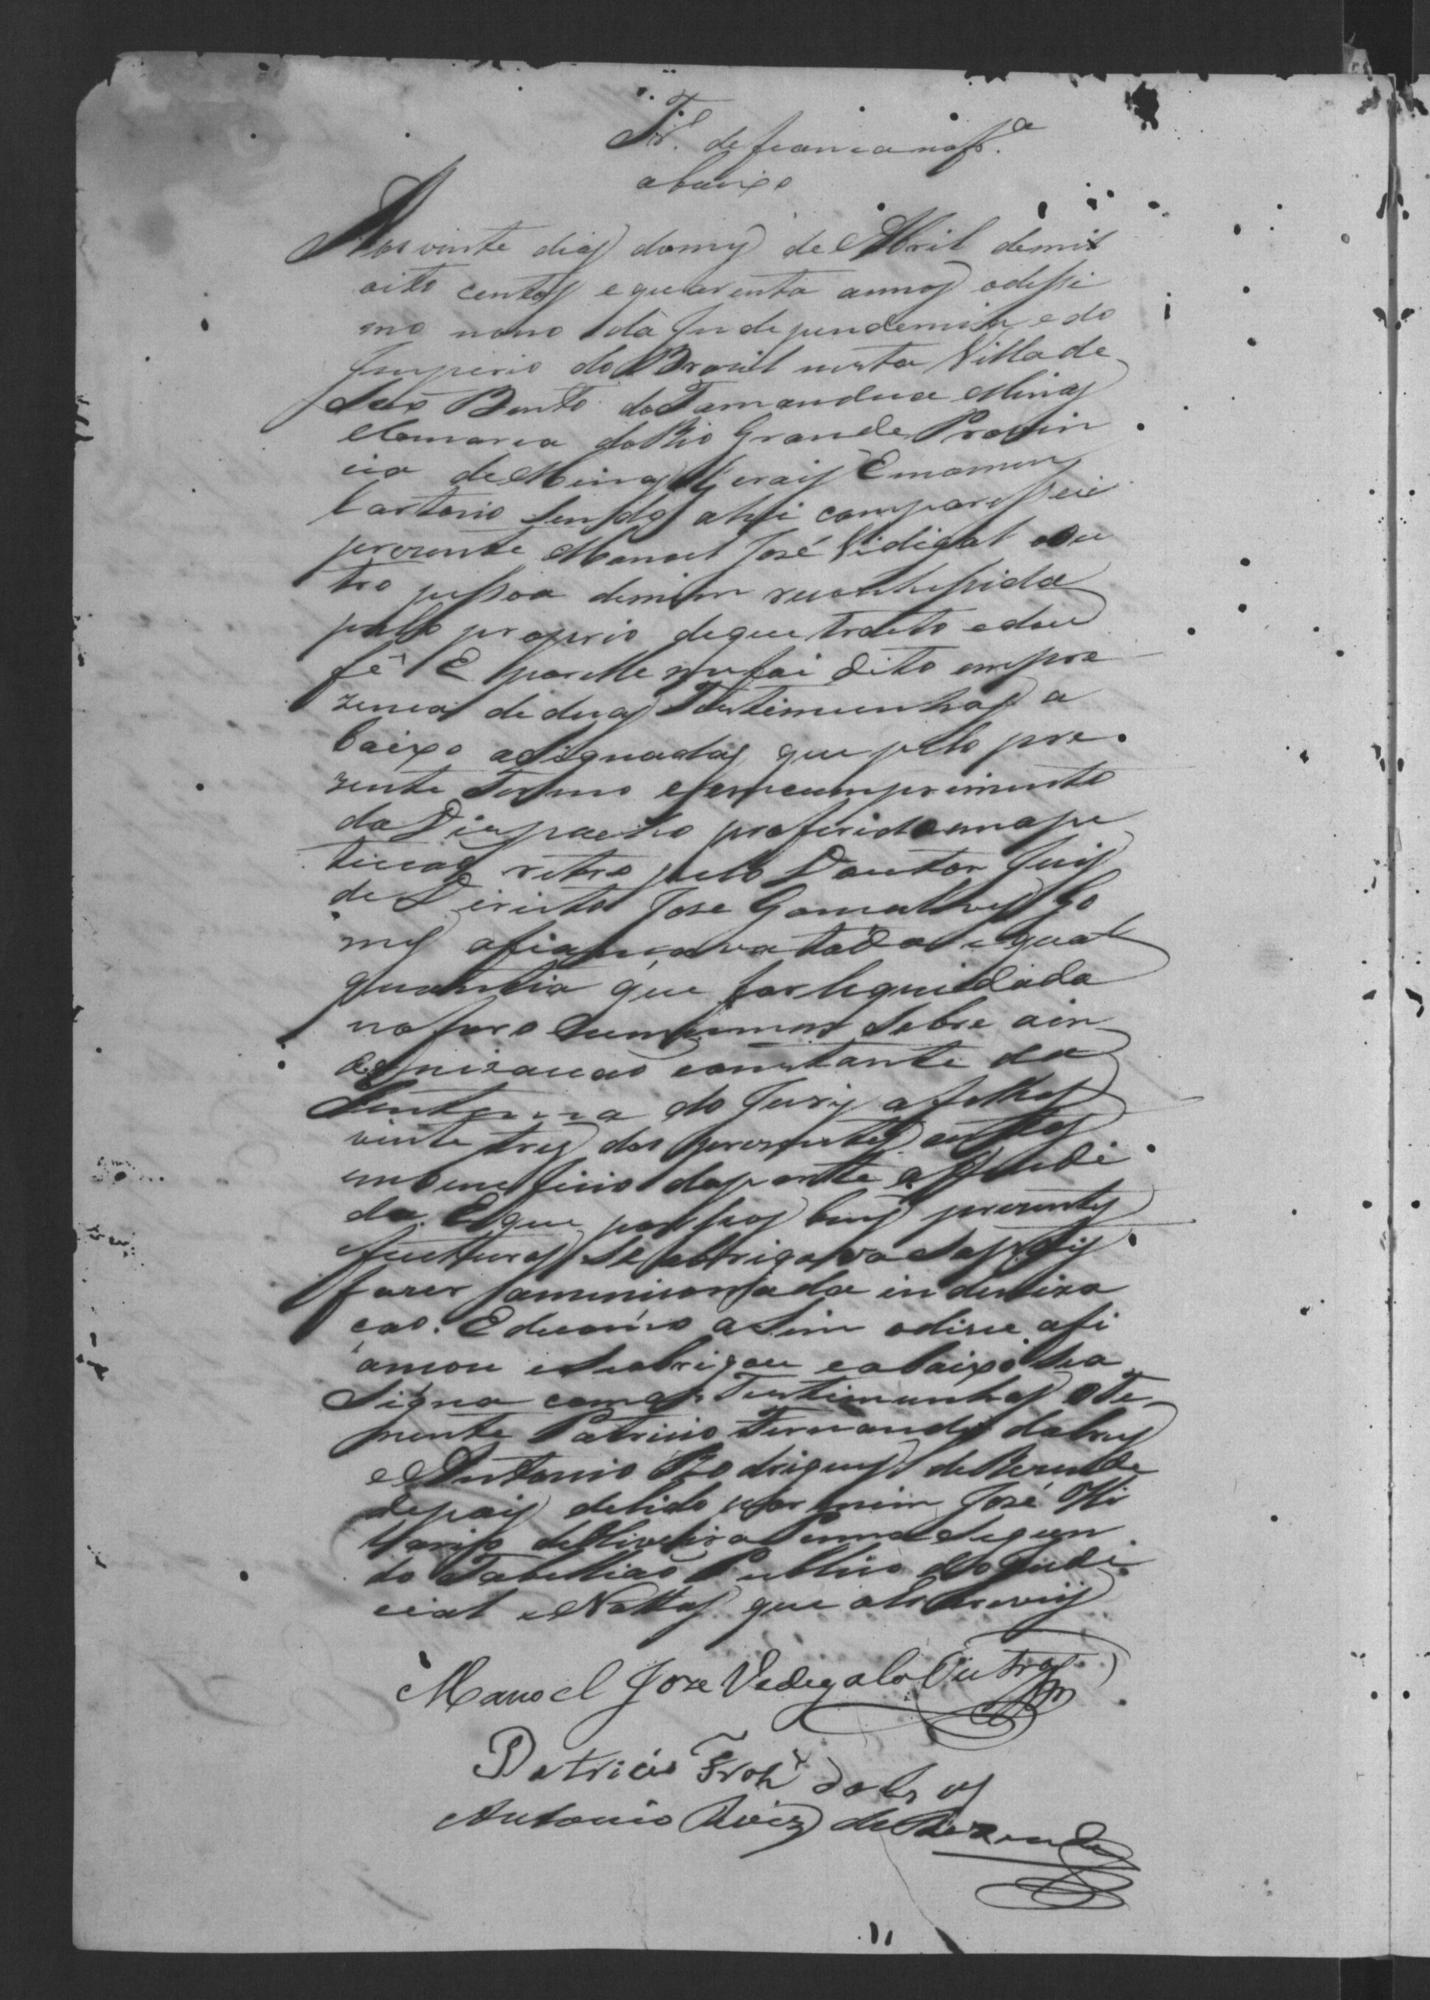 Tr.º de fiança na fr.ª
abaixo
Aos vinte dias do mes de Abril de mil
oito centos e quarenta annos odessi
mo nono da Independencia e do
Imperio do Brazil nesta Villa de
São Bento do Tamandua Minas
Comarca do Rio Grande Provin
cia de Minas Gerais Em o meu
Cartorio sendo ahi comparesseu
prezente Manoel José Vidigal Ou
tro pessoa de mim reconhessida
pelo proprio de que trato e dou
fé E por elle me foi dito em pre
zença de duas Testimunhas a
baixo asignadas que pelo pre
zente Termo e em cumprimento
do Despacho proferido em a pe
ticão retro pelo Doutor Juis
de Direito José Gonsalves Go
mes afiançava toda e qual
quantia que for liquidada
no foro sobre a in
denizacão constante da
Sentença do Jury a folhas
vinte tres dos prezentes autos
em beneficio da parte offendi
da. E que por seos bens prezentes
e futuros se obrigava a satis
fazer a mencionada indeniza
cão. E de como asim o disse afi
ançou e se obrigou e abaixo se a
signa com as Testimunhas o Te
nente Patricio Fernandes da Crus
e Antonio Rodrigues de Rezende
depois de lido por mim José Hi
lario de Oliveira Penna Segun
do Tabellião Publico do Judi
cial e Nottas que o escrevy
Manoel Joze Vedegalo Outro
Patricio Frñz da Crus
Antonio Roiz de Rezende